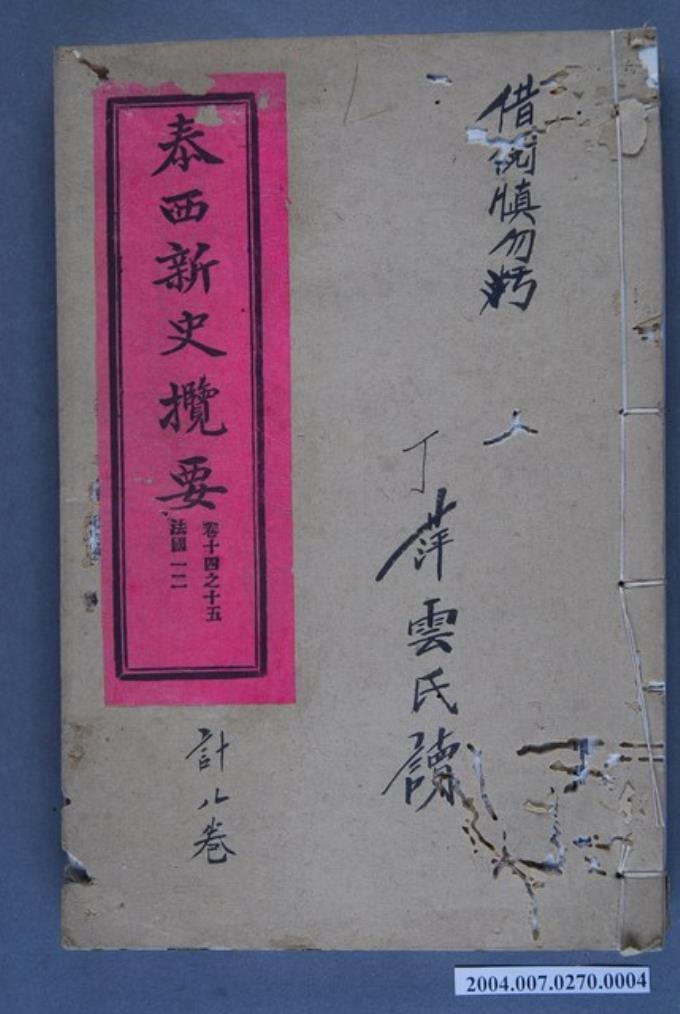 借閱慎勿污
丁萍雲氏讀
泰西新史攬要
卷十四之十五
法國一二
計八卷
2004.007.0270.0004